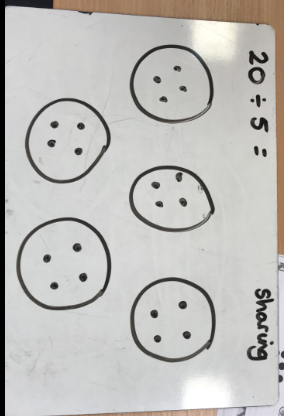 20 ÷ 5 =
sharing